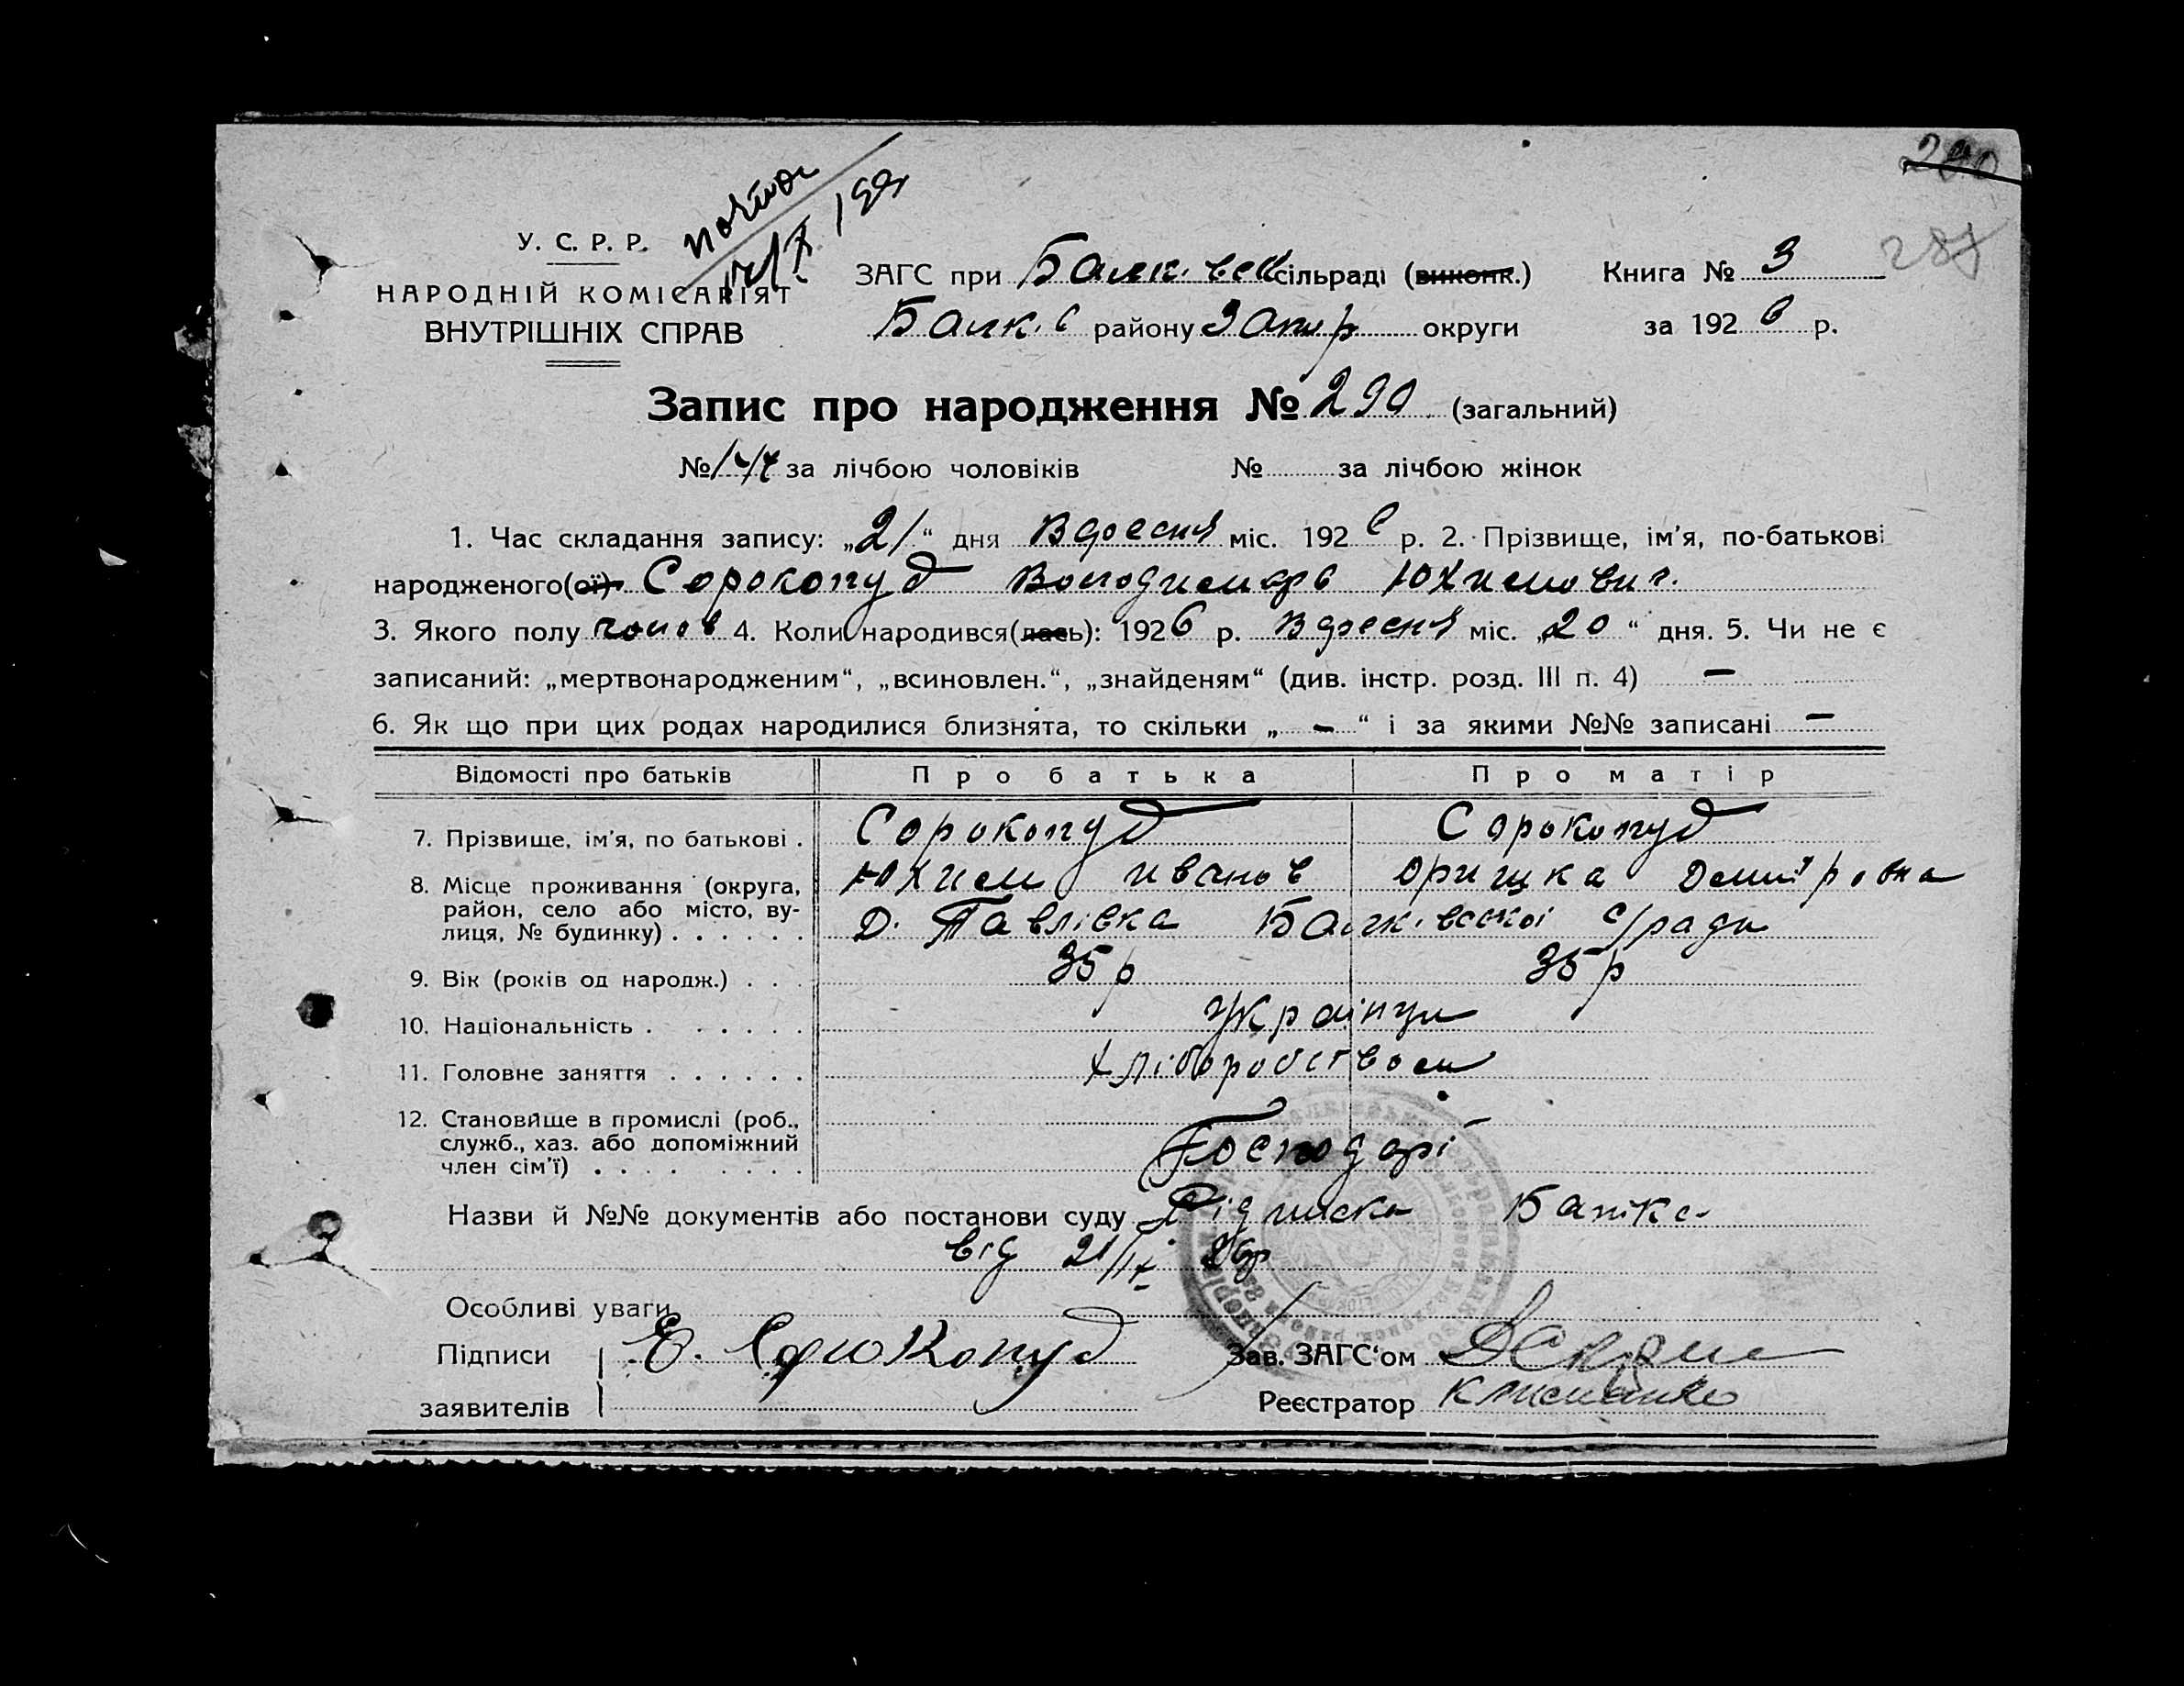 290
287
У. С. Р. Р.
НАРОДНІЙ КОМІСАРІЯТ
ВНУТРІШНІХ СПРАВ
ЗАГС при Балк. вск сільраді (виконк.)
Балк. району Запор округи
Книга № 3
за 1926 р.
Запис про народження № 290 (загальний)
№ 144 за лічбою чоловіків № за лічбою жінок
1. Час складання запису: „21“ дня Вересня міс. 1926 р. 2. Прізвище, ім’я, по-батькові
народженого(ої) Сорокопуд Володимаръ Юхимович.
3. Якого полу чолов 4. Коли народився(лась): 1926 р. Вересня міс. „20“ дня. 5. Чи не є
записаний: „мертвонародженим“, „всиновлен.“, „знайденям“ (див. інстр. розд. III п. 4) —
6. Як що при цих родах народилися близнята, то скільки „ — “ і за якими №№ записані —
Відомості про батьків Про батька Про матір
7. Прізвище, ім’я, по батькові . Сорокопуд Сорокопуд
Юхим Иванов Оришка Дмитровна
8. Місце проживання (округа, район, село або місто, вулиця, № будинку) . . . . . . Д. Павлівка Балк. вської с/ради
9. Вік (років од народж.) . . . 35 р 35 р
10. Національність . . . . . . Українци
11. Головне заняття . . . . . . Хліборобством
12. Становище в промислі (роб., служб., хаз. або допоміжний член сім’ї) . . . . Господарі
Назви й №№ документів або постанови суду Підписка Батка
від 21/IX 26р
Особливі уваги
Підписи заявителів Е. Сорокопуд
Зав. ЗАГС‘ом
Реєстратор